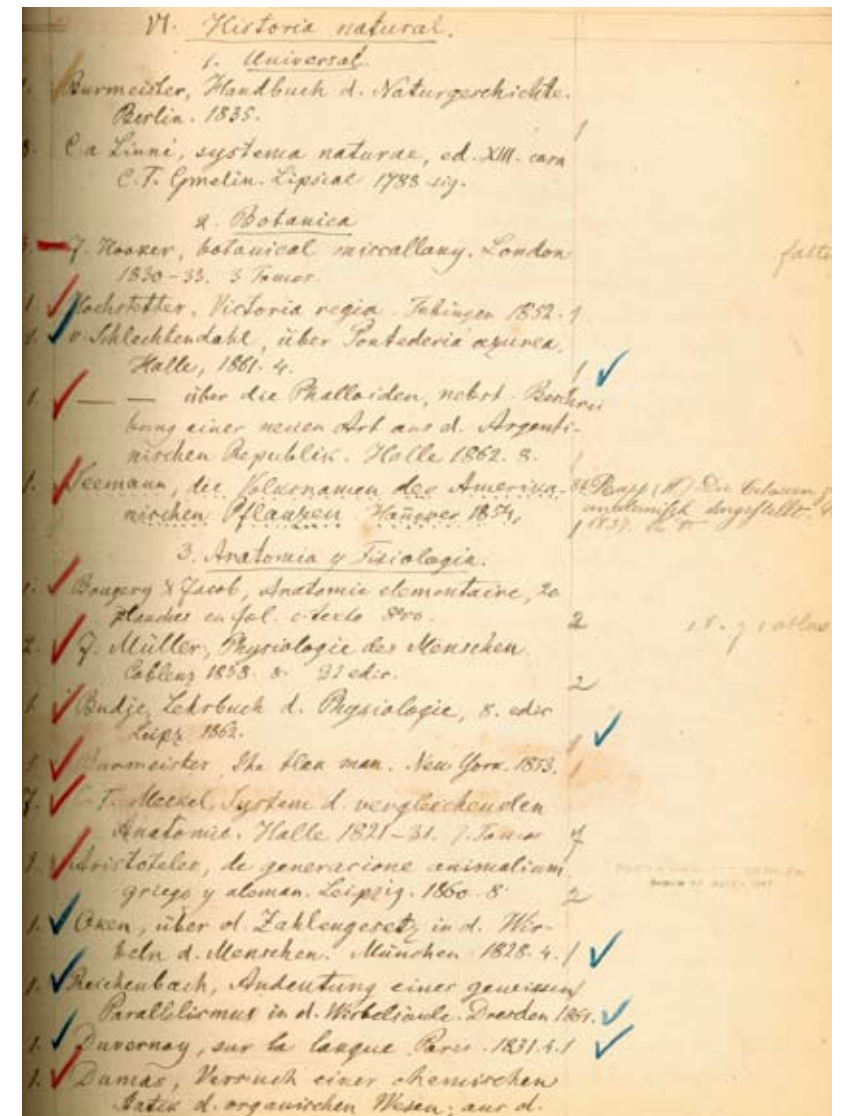 VI. Historia natural.
1. Universal.
Burmeister, Handbuch d. Naturgeschichte.
Berlin. 1835. 1
8. C. a Linné, systema naturae, ed. XIII. cura
C. T. Gmelin. Lipsiae 1788 sig.
2. Botanica
3. J. Hooker, botanical miscallany. London
1830-33. 3 Tomos. falta
1. Hochstetter, Victoria regia. Tubingen 1852. 1
1. v. Schlechtendahl, über Pontederia azurea.
Halle, 1861. 4. 1
1. — — über die Phalloiden, nebst Beschrei
bung einer neuen Art aus d. Argenti-
nischen Republik. Halle 1862. 8.
1. Seemann, die Volksnamen der Amerika-
nischen Pflanzen Hañover 1854, 1
Rapp (W) Die
dargestellt. 4
1837.
3. Anatomia y Fisiologia.
1. Bougery & Jacob, Anatomie elementaire, 20
planches en fol. c. texto 8vo. 2
2. J. Müller, Physiologie des Menschen.
Coblenz 1838. 8. edic. 2
1. Budje, Lehrbuch d. Physiologie, 8. edic
Leipz 1862. 1
1. Burmeister, The blak man. New York. 1853. 1
7. T. Meckel, System d. vergleichenden
Anatomie. Halle 1821-31. 7. Tomos 7
1. Aristoteles, de generacione animalium
griego y aleman. Leipzig. 1860. 8. 2
1. Oken, über d. Zahlengesetz in d. Wir-
beln d. Menschen. München 1828. 4. 1
1. Reichenbach, Andeutung einer gewissen
Parallelismus in d. Wirbelsäule. Dresden 1861.
1. Duvernoy, sur la langue Paris. 1831. 4. 1
1. Dumas, Versuch einer chemischen
Statik d. organischen Wesen; aus d.